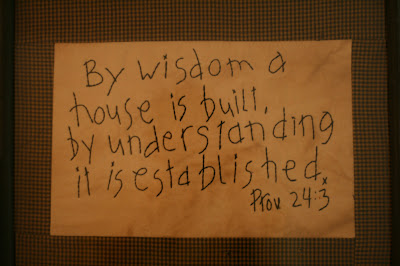 By wisdom a
house is built,
by understanding
it is established.
Prov 24:3